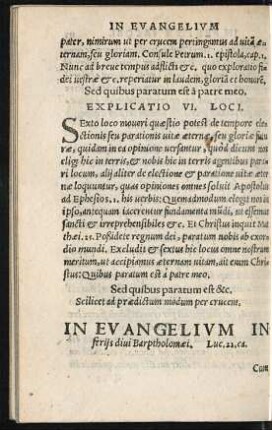 IN EVANGELIVM
pater, nimirum ut per crucem pertingamus ad uitā æ
ternam, seu gloriam. Consule Petrum. 1. epistola, cap. 1.
Nunc ad breue tempus adflicti &c. quo exploratio fi
dei uestræ &c. reperiatur in laudem, gloriā et honorē.
Sed quibus paratum est à patre meo.
EXPLICATIO VI. LOCI.
SExto loco moueri quæstio potest de tempore ele
ctionis seu parationis uitæ æternæ, seu gloriæ futu
ræ, quidam in ea opinione uersantur, quòd dicunt non
eligi hic in terris, & nobis hic in terris agentibus para
ri locum, alij aliter de electione & paratione uitæ æter
næ loquuntur, quas opiniones omnes soluit Apostolus
ad Ephesios. 1. his uerbis: Quemadmodum elegit nos in
ipso, antequam iacerentur fundamenta mūdi, ut essemus
sancti & irreprehensibiles &c. Et Christus inquit Mat
thæi. 25. Possidete regnum dei, paratum nobis ab exor
dio mundi. Excludit & sextus hic locus omne nostrum
meritum, ut accipiamus æternam uitam, ait enim Chri
stus: Quibus paratum est à patre meo.
Sed quibus paratum est &c.
Scilicet ad prædictum modum per crucem.
IN EVANGELIVM IN
ferijs diui Barptholomæi. Luc. 22. ca.
Cum